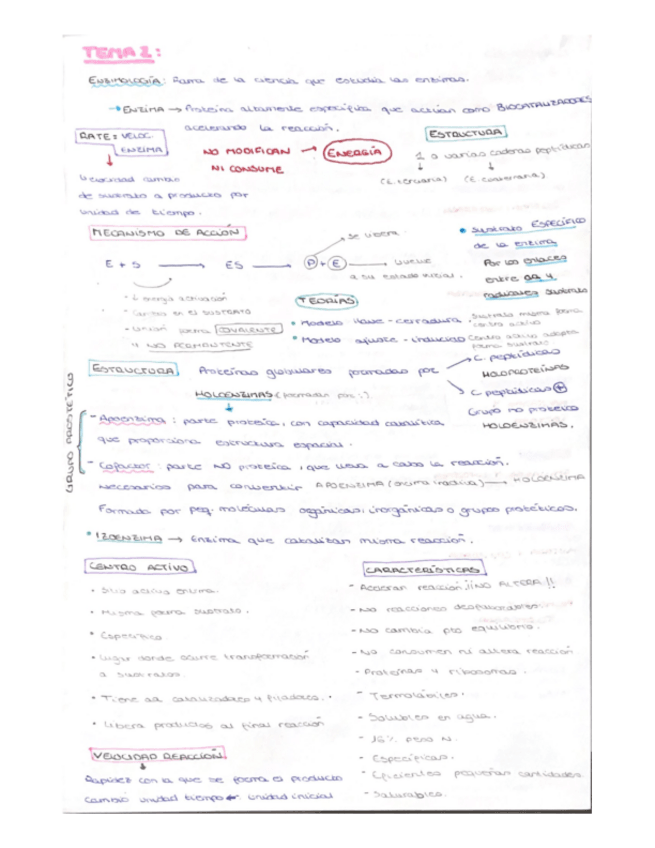 TEMA 2:
ENZIMOLOGÍA: Rama de la ciencia que estudia las enzimas.
ENZIMA → Proteína altamente específica que actúan como BIOCATALIZADORES
acelerando la reacción.
RATE = VELOC.
ENZIMA
NO MODIFICAN → ENERGÍA
NI CONSUME
ESTRUCTURA
1 o varias cadenas peptídicas
(E. terciaria) (E. cuaternaria)
Velocidad cambio
de sustrato a producto por
unidad de tiempo.
MECANISMO DE ACCIÓN
se libera
E + S → ES → P + E → vuelve
a su estado inicial.
• Sustrato ESPECÍFICO
de la enzima
Por los enlaces
entre aa y
moléculas sustrato
- ↓ energía activación
- Cambio en el SUSTRATO
- Unión forma COVALENTE
y NO PERMANENTE
TEORÍAS
• Modelo llave-cerradura. Sustrato misma forma
centro activo
• Modelo ajuste-inducido Centro activo adopta
forma sustrato
ESTRUCTURA Proteínas globulares formadas por
C. peptídicas
HOLOPROTEÍNAS
C. peptídicas +
Grupo no proteico
HOLOENZIMAS.
HOLOENZIMAS (formadas por:)
GRUPO PROSTÉTICO
- Apoenzima: parte proteica, con capacidad catalítica
que proporciona estructura espacial.
- Cofactor: parte NO proteica, que lleva a cabo la reacción.
Necesarios para convertir APOENZIMA (enzima inactiva) → HOLOENZIMA
Formado por peq. moléculas orgánicas, inorgánicas o grupos protéticos.
• IZOENZIMA → Enzima que catalizan misma reacción.
CENTRO ACTIVO
• Sitio activo enzima.
• Misma forma sustrato.
• Específico
• Lugar donde ocurre transformación
a sustratos.
• Tiene aa catalizadores y fijadores.
• Libera productos al final reacción
CARACTERÍSTICAS
- Aceleran reacción, ¡¡NO ALTERA!!
- No reacciones desfavorables.
- No cambia pto equilibrio.
- No consumen ni altera reacción
- Proteínas y ribosomas.
- Termolábiles.
- Solubles en agua.
- 16% peso N.
- Específicas.
- Eficientes pequeñas cantidades.
- Saturables.
VELOCIDAD REACCIÓN
Rapidez con la que se forma el producto
Cambio unidad tiempo unidad inicial